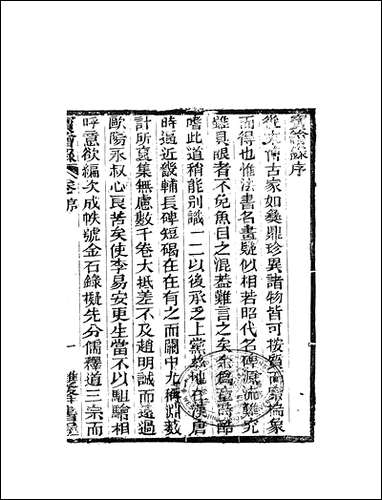 寶繪錄序
從來傳古家如彝鼎珍異諸物皆可按質而索揣象
而得也惟法書名畫疑似相若昭代名碑源流難究
雖具眼者不免魚目之混蓋難言之矣余為童時酷
嗜此道稍能別識一二以後承乏上黨茲地在漢唐
時逼近畿輔長碑短碣在在有之而關中尤稱淵藪
計所裒集無慮數千卷大抵差不及趙明誠而遠過
歐陽永叔心良苦矣使李易安更生當不以駔驓相
呼意欲編次成帙號金石錄擬先分儒釋道三宗而
寶繪錄
卷序
一